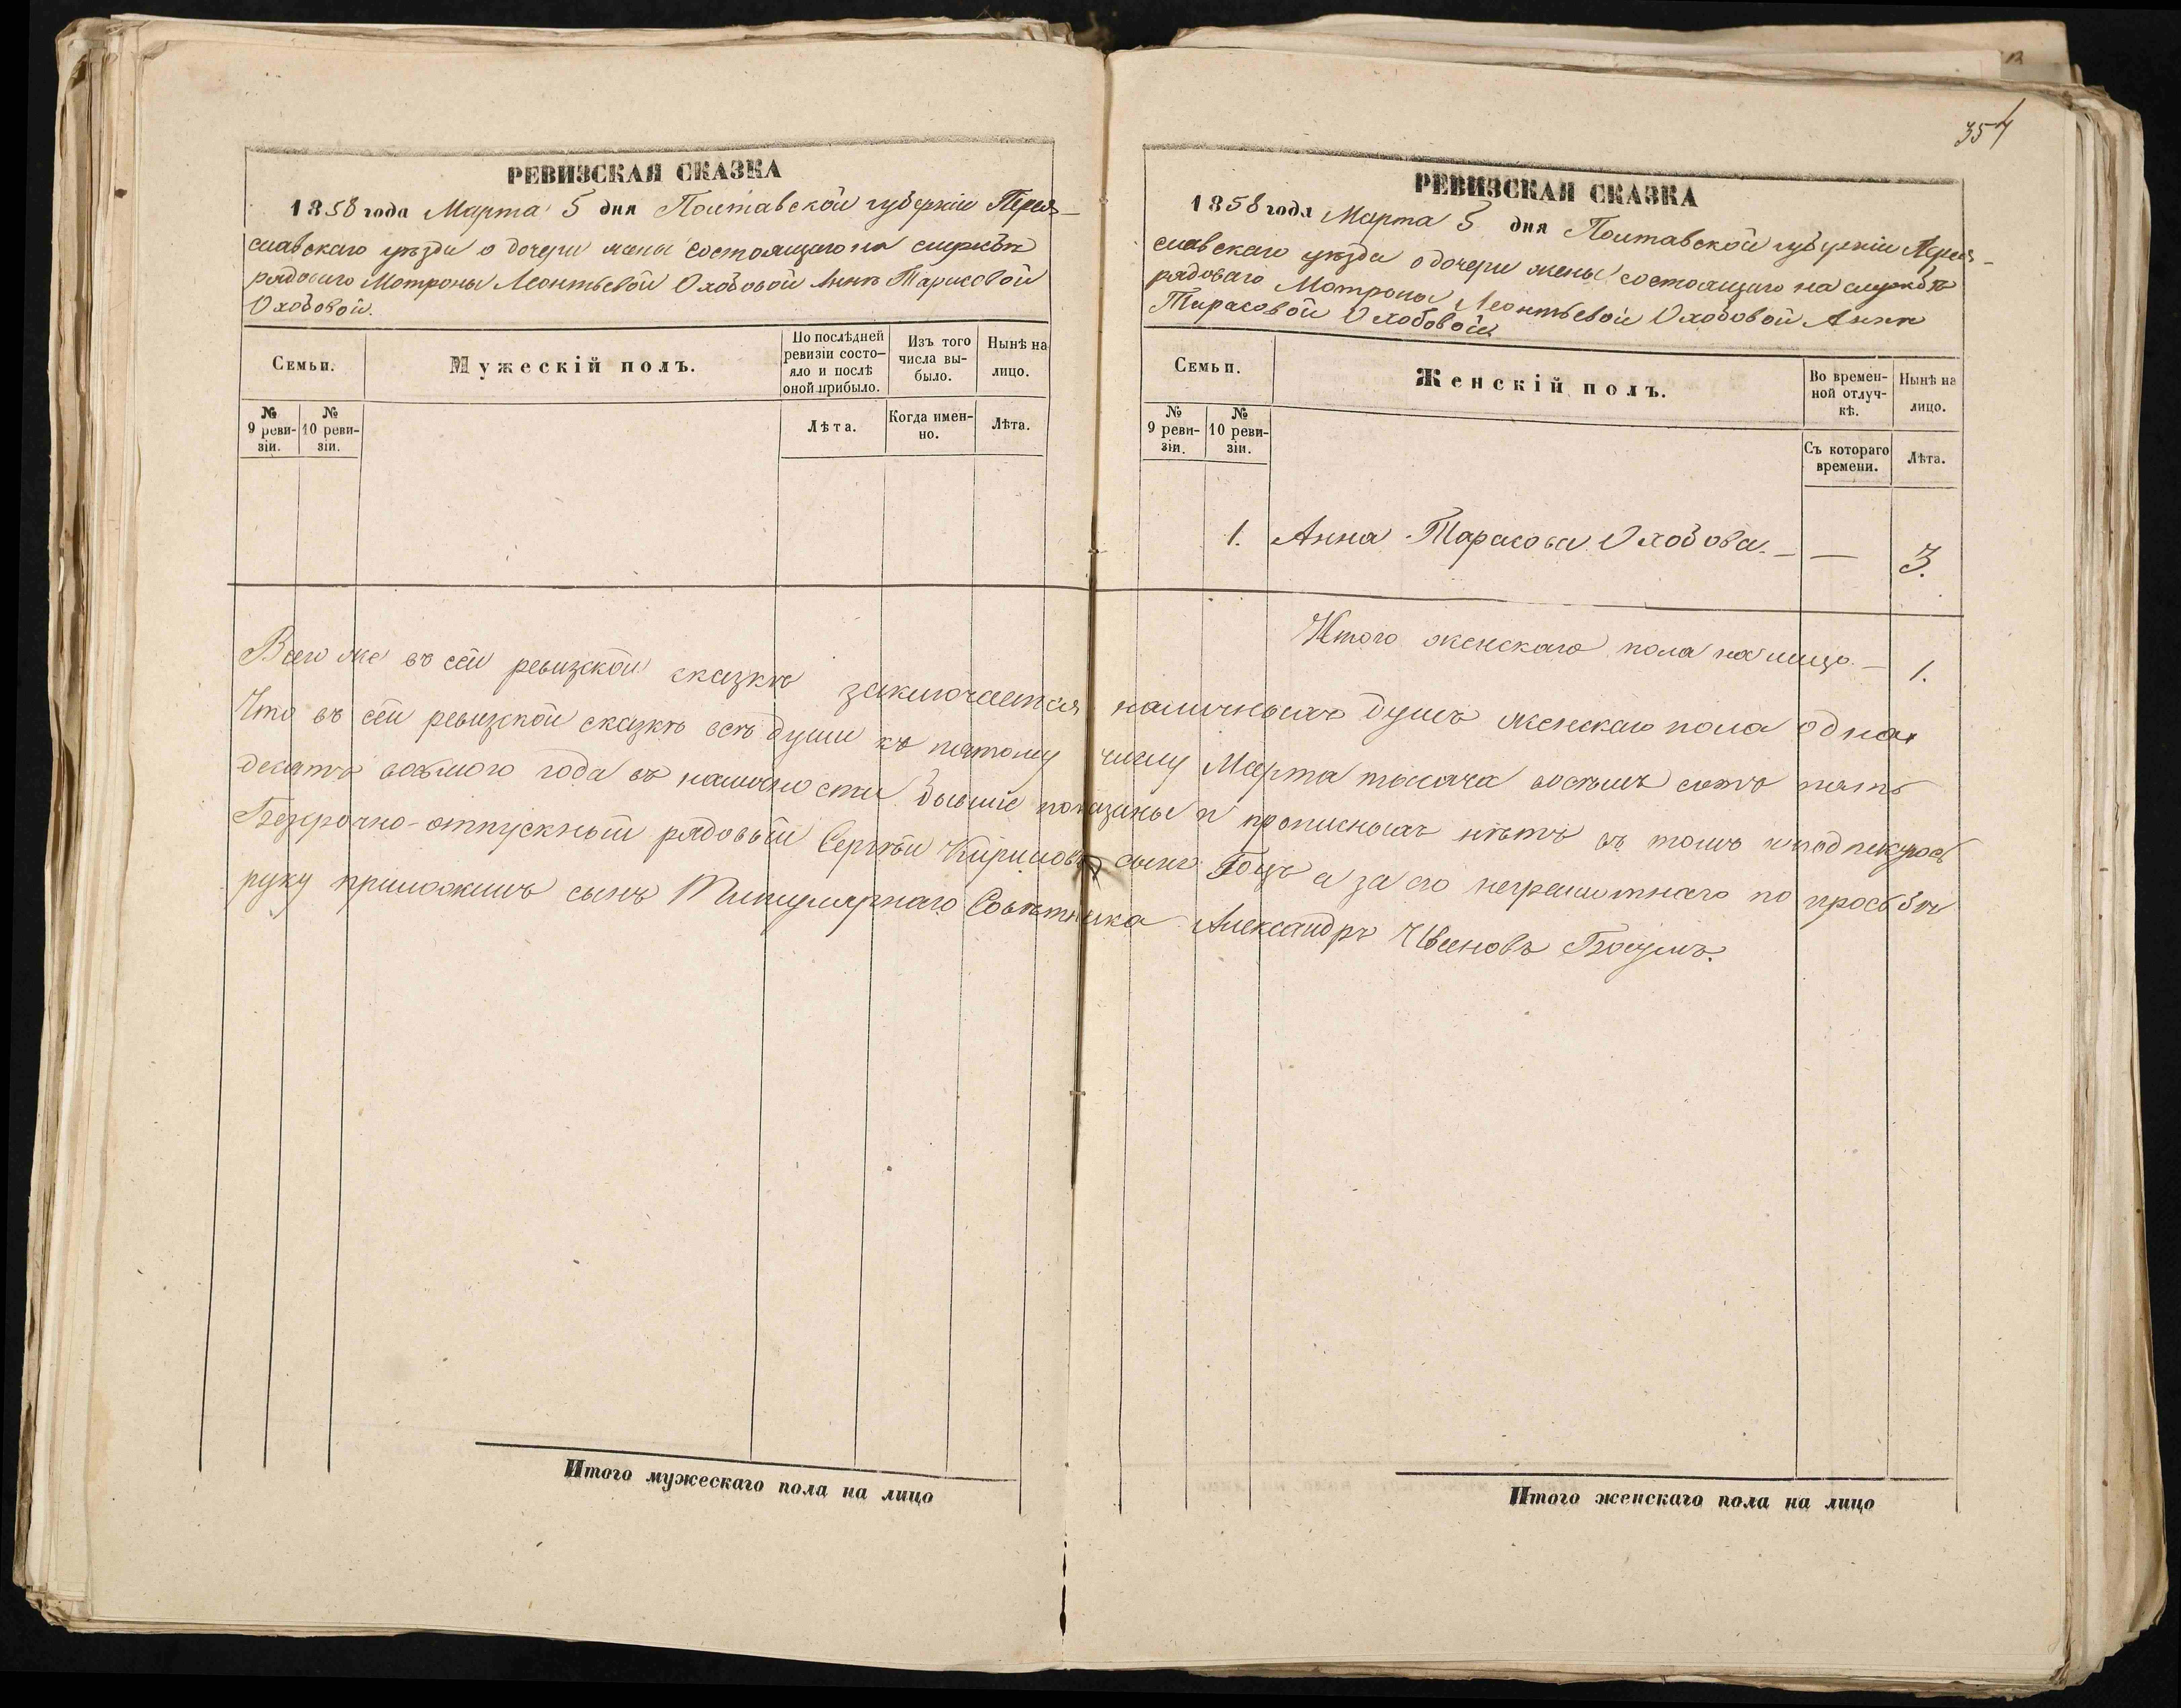 РЕВИЗСКАЯ СКАЗКА
1858 года Марта 5 дня Полтавской губернии Перея-
славскаго уѣзда о дочери жены состоящаго на службѣ
рядоваго Мотроны Леонтьевой Охобовой Аннѣ Тарасовой
Охобовой.
Семьи.
Мужескій полъ.
По послѣдней
ревизіи состо-
яло и послѣ
оной прибыло.
Изъ того
числа вы-
было.
Нынѣ на
лицо.
№
9 реви-
зіи.
№
10 реви-
зіи.
Лѣта.
Когда имен-
но.
Лѣта.
354
РЕВИЗСКАЯ СКАЗКА
1858 года Марта 5 дня Полтавской губерніи Перея-
славскаго уѣзда о дочери жены состоящаго на службѣ
рядоваго Мотроны Леонтьевой Охобовой Аннѣ
Тарасовой Охобовой
Семьи.
Женскій полъ.
Во времен-
ной отлуч-
кѣ.
Нынѣ на
лицо.
№
9 реви-
зіи.
№
10 реви-
зіи.
Съ котораго
времени.
Лѣта.
1. Анна Тарасова Охобова. — — 3.
Итого женскаго пола на лицо — 1.
Всего же въ сей ревизской сказкѣ заключается наличныхъ душъ женскаго пола одна
Что въ сей ревизской сказкѣ всѣ души къ пятому числу Марта тысяча восемь сотъ пять
десятъ восьмого года въ наличности бывшіе показаны и прописныхъ нѣтъ въ томъ и подпи
Безсрочно-отпускный рядовый Сергѣй Кириловъ сынъ а за его неграмотнаго по просьбѣ
руку приложилъ сынъ Титулярнаго Совѣтника Александръ Ивановъ
Итого мужескаго пола на лицо
Итого женскаго пола на лицо